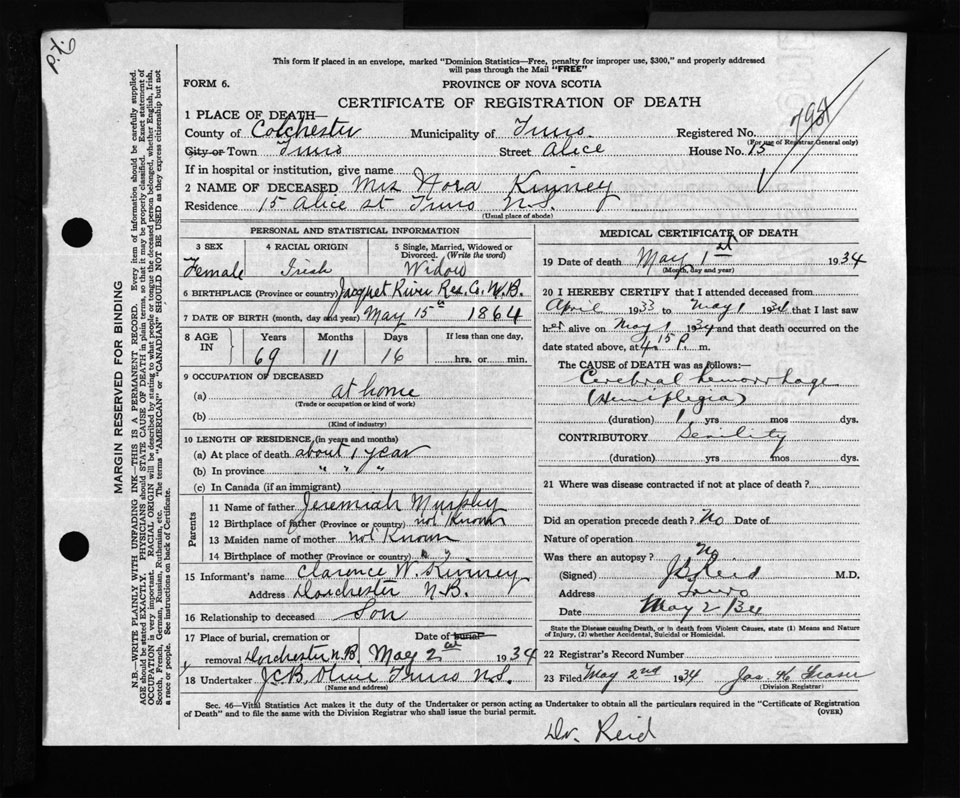 p.t.6
This form if placed in an envelope, marked "Dominion Statistics—Free, penalty for improper use, $300," and properly addressed
will pass through the Mail "FREE"
FORM 6.
PROVINCE OF NOVA SCOTIA
CERTIFICATE OF REGISTRATION OF DEATH
1 PLACE OF DEATH—
County of Colchester Municipality of Truro. Registered No.
(For use of Registrar General only)
City or Town Truro Street Alice House No. 15
If in hospital or institution, give name
2 NAME OF DECEASED Mrs Nora Kinney
Residence 15 Alice st Truro N.S.
(Usual place of abode)
PERSONAL AND STATISTICAL INFORMATION
3 SEX Female
4 RACIAL ORIGIN Irish
5 Single, Married, Widowed or Divorced. (Write the word) Widow
6 BIRTHPLACE (Province or country) Jacquet River Res. Co. N.B.
7 DATE OF BIRTH (month, day and year) May 15th 1864
8 AGE IN Years Months Days If less than one day,
69 11 16 hrs. or min.
9 OCCUPATION OF DECEASED
(a) at home
(Trade or occupation or kind of work)
(b)
(Kind of industry)
10 LENGTH OF RESIDENCE (in years and months)
(a) At place of death about 1 year
(b) In province " " "
(c) In Canada (if an immigrant)
Parents
11 Name of father Jeremiah Murphy
12 Birthplace of father (Province or country) not Known
13 Maiden name of mother not Known
14 Birthplace of mother (Province or country)
15 Informant's name Clarence W. Kinney
Address Dorchester N.B.
16 Relationship to deceased Son
17 Place of burial, cremation or Date of burial
removal Dorchester N.B. May 2 1934
18 Undertaker Truro N.S.
(Name and address)
MEDICAL CERTIFICATE OF DEATH
19 Date of death May 1st 1934
(Month, day and year)
20 I HEREBY CERTIFY that I attended deceased from
April 1933 to May 1 1934 that I last saw
her alive on May 1 1934 and that death occurred on
date stated above, at 4.15 P. m.
The CAUSE of DEATH was as follows:—
Cerebral hemorrhage
(Hemiplegia)
(duration) 1 yrs mos dys.
CONTRIBUTORY Senility
(duration) yrs mos dys.
21 Where was disease contracted if not at place of death?
Did an operation precede death? No Date of
Nature of operation
Was there an autopsy? No
(Signed) Reid M.D.
Address Truro
Date May 2/34
State the Disease causing Death, or in death from Violent Causes, state (1) Means and Nature of Injury, (2) whether Accidental, Suicidal or Homicidal.
22 Registrar's Record Number
23 Filed May 2nd 1934 Jas. K. Fraser
(Division Registrar)
Sec. 46—Vital Statistics Act makes it the duty of the Undertaker or person acting as Undertaker to obtain all the particulars required in the "Certificate of Registration
of Death" and to file the same with the Division Registrar who shall issue the burial permit. (OVER)
Dr. Reid
MARGIN RESERVED FOR BINDING
N.B.—WRITE PLAINLY WITH UNFADING INK—THIS IS A PERMANENT RECORD. Every item of information should be carefully supplied.
AGE should be stated EXACTLY. PHYSICIANS should STATE CAUSE OF DEATH in plain terms, so that it may be properly classified. Exact statement of
OCCUPATION is very important. RACIAL ORIGIN will be described by stating to what people or tongue the deceased person belonged, whether English, Irish,
Scotch, French, German, Russian, Ruthenian, etc. The terms "AMERICAN" or "CANADIAN" SHOULD NOT BE USED as they express citizenship but not
a race or people. See instructions on back of Certificate.